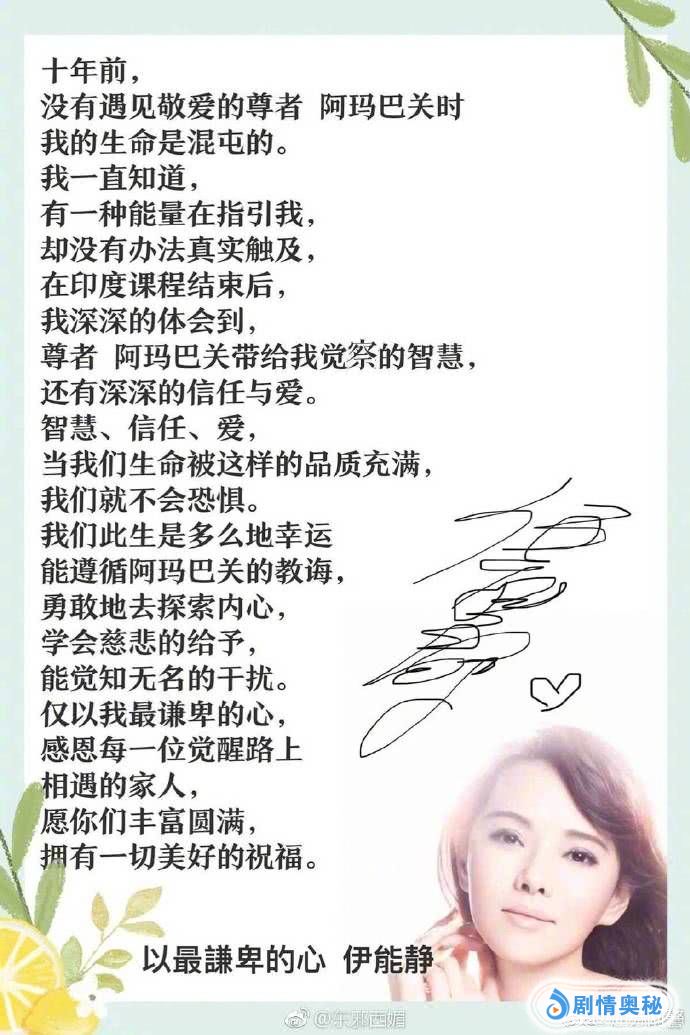 十年前，
没有遇见敬爱的尊者 阿玛巴关时
我的生命是混屯的。
我一直知道，
有一种能量在指引我，
却没有办法真实触及，
在印度课程结束后，
我深深的体会到，
尊者 阿玛巴关带给我觉察的智慧，
还有深深的信任与爱。
智慧、信任、爱，
当我们生命被这样的品质充满，
我们就不会恐惧。
我们此生是多么地幸运
能遵循阿玛巴关的教诲，
勇敢地去探索内心，
学会慈悲的给予，
能觉知无名的干扰。
仅以我最谦卑的心，
感恩每一位觉醒路上
相遇的家人，
愿你们丰富圆满，
拥有一切美好的祝福。
以最謙卑的心 伊能静
@东邪西媚
剧情奥秘